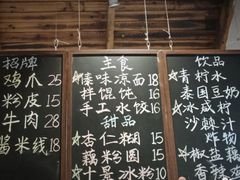 招牌
鸡爪 25
粉皮 15
牛肉 28
酱米线 18
主食
臻味凉面 18
拌馄饨 16
手工水饺 16
甜品
杏仁糊 15
藕粉圆 15
十景冰粉 10
饮品
青柠水
泰国豆奶
冰咸柠
沙棘汁
炸物
椒盐藕
香辣鸡